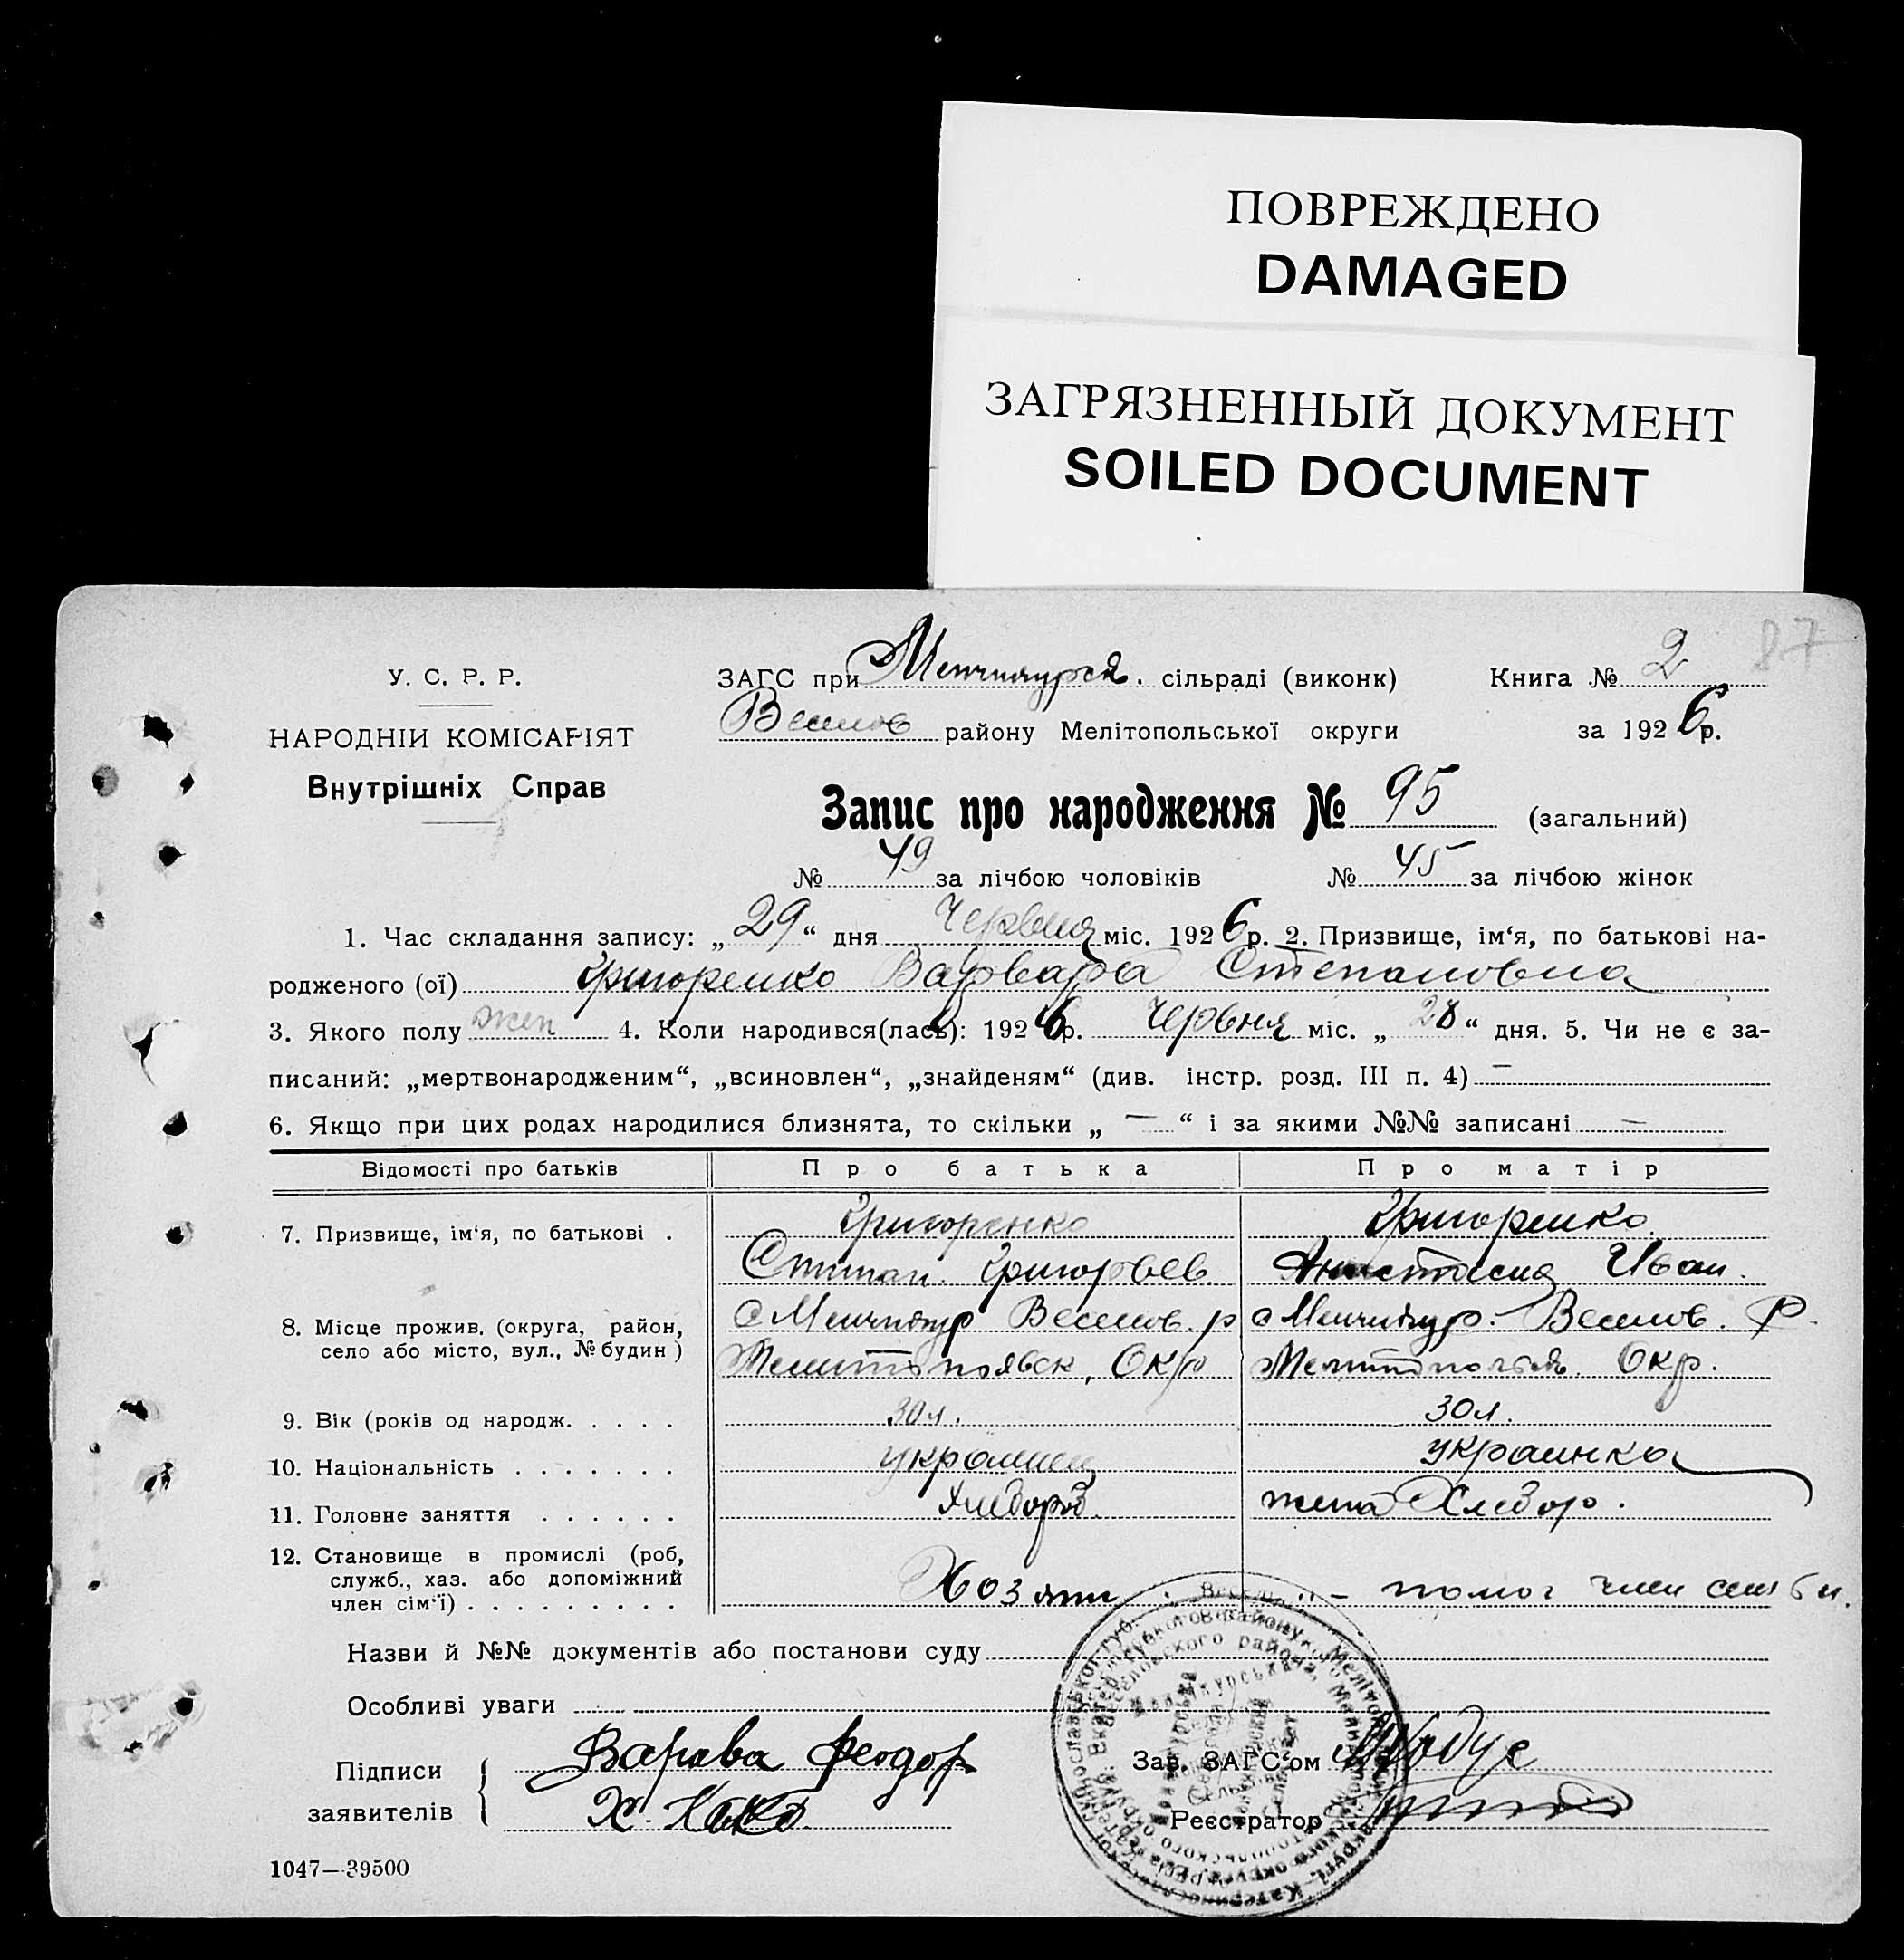 ПОВРЕЖДЕНО
DAMAGED
ЗАГРЯЗНЕННЫЙ ДОКУМЕНТ
SOILED DOCUMENT
87
У. С. Р. Р.
ЗАГС при сільраді (виконк) Книга № 2
НАРОДНІЙ КОМІСАРІЯТ
Весилов району Мелітопольської округи за 1926 р.
Внутрішніх Справ
Запис про народження № 95 (загальний)
№ 49 за лічбою чоловіків № 45 за лічбою жінок
1. Час складання запису: „29“ дня Червня міс. 1926 р. 2. Призвище, ім‘я, по батькові на-
родженого (ої) Григоренко Варвара Степановна
3. Якого полу жен 4. Коли народився(лась): 1926 р. Червня міс. „28“ дня. 5. Чи не є за-
писаний: „мертвонародженим“, „всиновлен“, „знайденям“ (див. інстр. розд. III п. 4) —
6. Якщо при цих родах народилися близнята, то скільки „ — “ і за якими №№ записані —
Відомості про батьків Про батька Про матір
7. Призвище, ім‘я, по батькові . Григоренко Григоренко
Степан Григорьев. Анастасия Иван.
8. Місце прожив. (округа, район, с Менчикур Веселов. р с Менчикур. Веселов. Р.
село або місто, вул., № будин) Мелитопольск, Окр Мелитопольск. Окр.
9. Вік (років од народж. . . . . 30 л. 30 л.
10. Національність . . . . . . . украинец украинка
11. Головне заняття . . . . . . Хлебороб. жена Хлебор.
12. Становище в промислі (роб,
служб., хаз. або допоміжний
член сім‘ї) . . . . . . . . . Хозяин - помог член семьи.
Назви й №№ документів або постанови суду
Особливі уваги
Підписи Варава Феодор Зав. ЗАГС‘ом
заявителів Х. Реєстратор
1047—39500